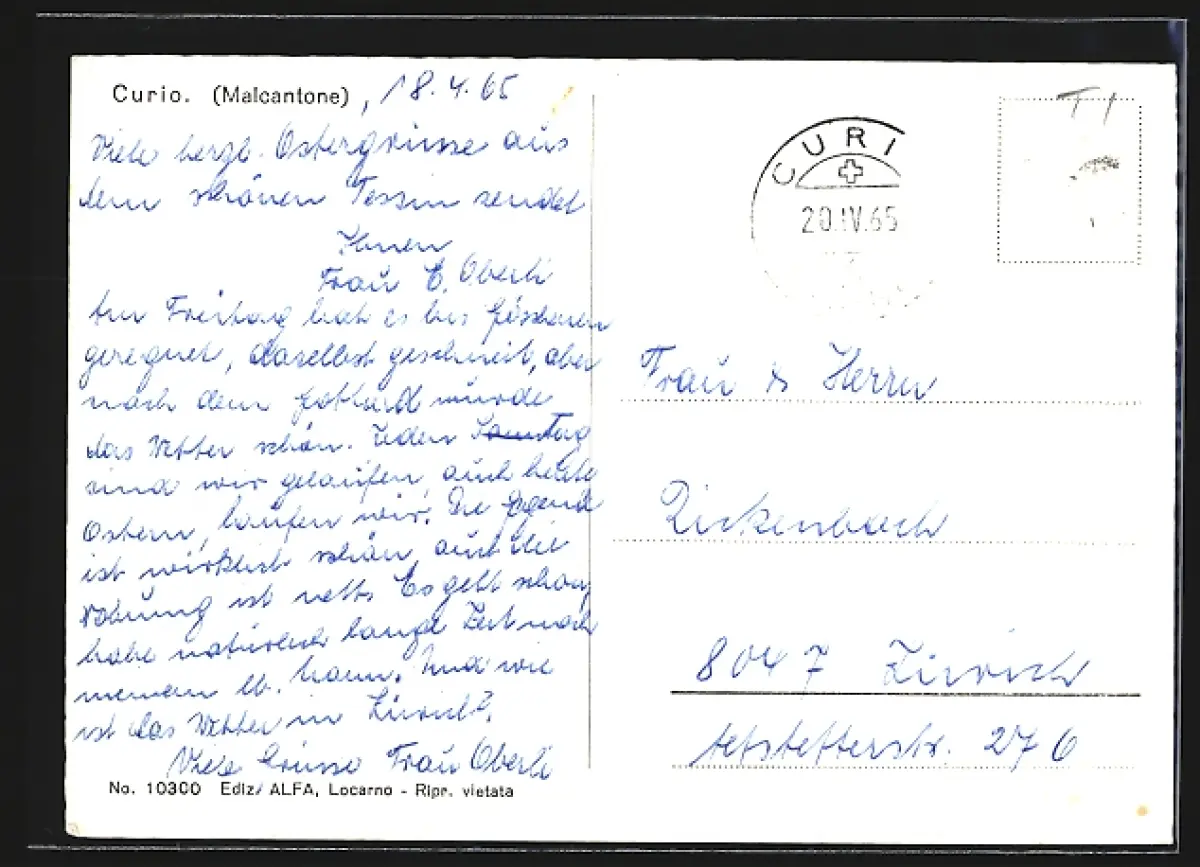 Curio. (Malcantone), 18.4.65
Viele herzl. Ostergrüsse aus
dem schönen Tessin sendet
Ihnen
Frau E. Oberli
Am Freitag hat es bis Göschenen
geregnet, daselbst geschneit, aber
nach dem Gotthard wurde
das Wetter schön. Jeden Tag
sind wir gelaufen, auch heute
Ostern, laufen wir. Die Gegend
ist wirklich schön, auch die
ist nett. Es geht schon,
habe natürlich lange Zeit nach
meinem lb. Mann. Und wie
ist das Wetter in Zürich?
Viele Grüsse Frau Oberli
No. 10300 Ediz. ALFA, Locarno - Ripr. vietata
CURI
20.IV.65
T /
Frau & Herrn
Rickenbach
8047 Zürich
276